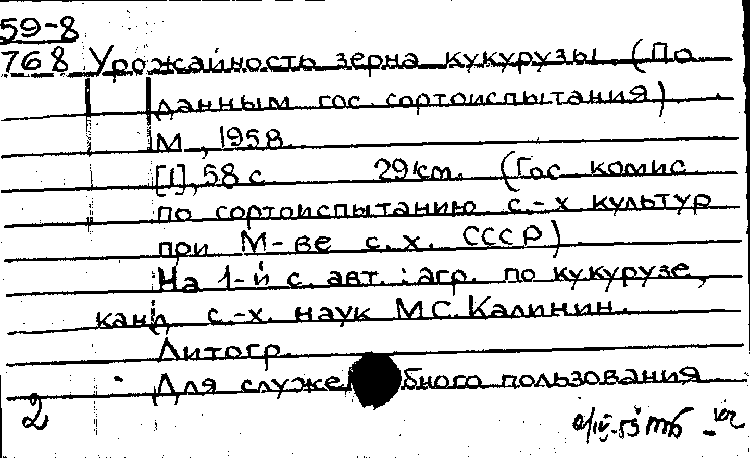 59-8
768 Урожайность зерна кукурузы. (По
данным гос. сортоиспытания)
М., 1958.
[1], 58 с 29 см. (Гос. комис.
по сортоиспытанию с.-х культур
при М-ве с.х. СССР)
На 1-й с. авт.: агр. по кукурузе,
канд с.-х. наук М.С. Калинин.
Литогр.
Для служебного пользования
2